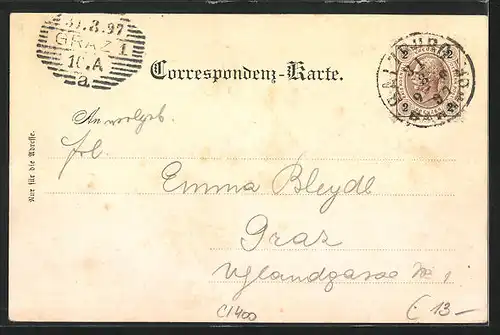 31.8.97
GRAZ 1
10.A
a
Correspondenz-Karte.
Nur für die Adresse.
Frl.
Emma Bleyde
Graz
No 1
C1400
€ 13-